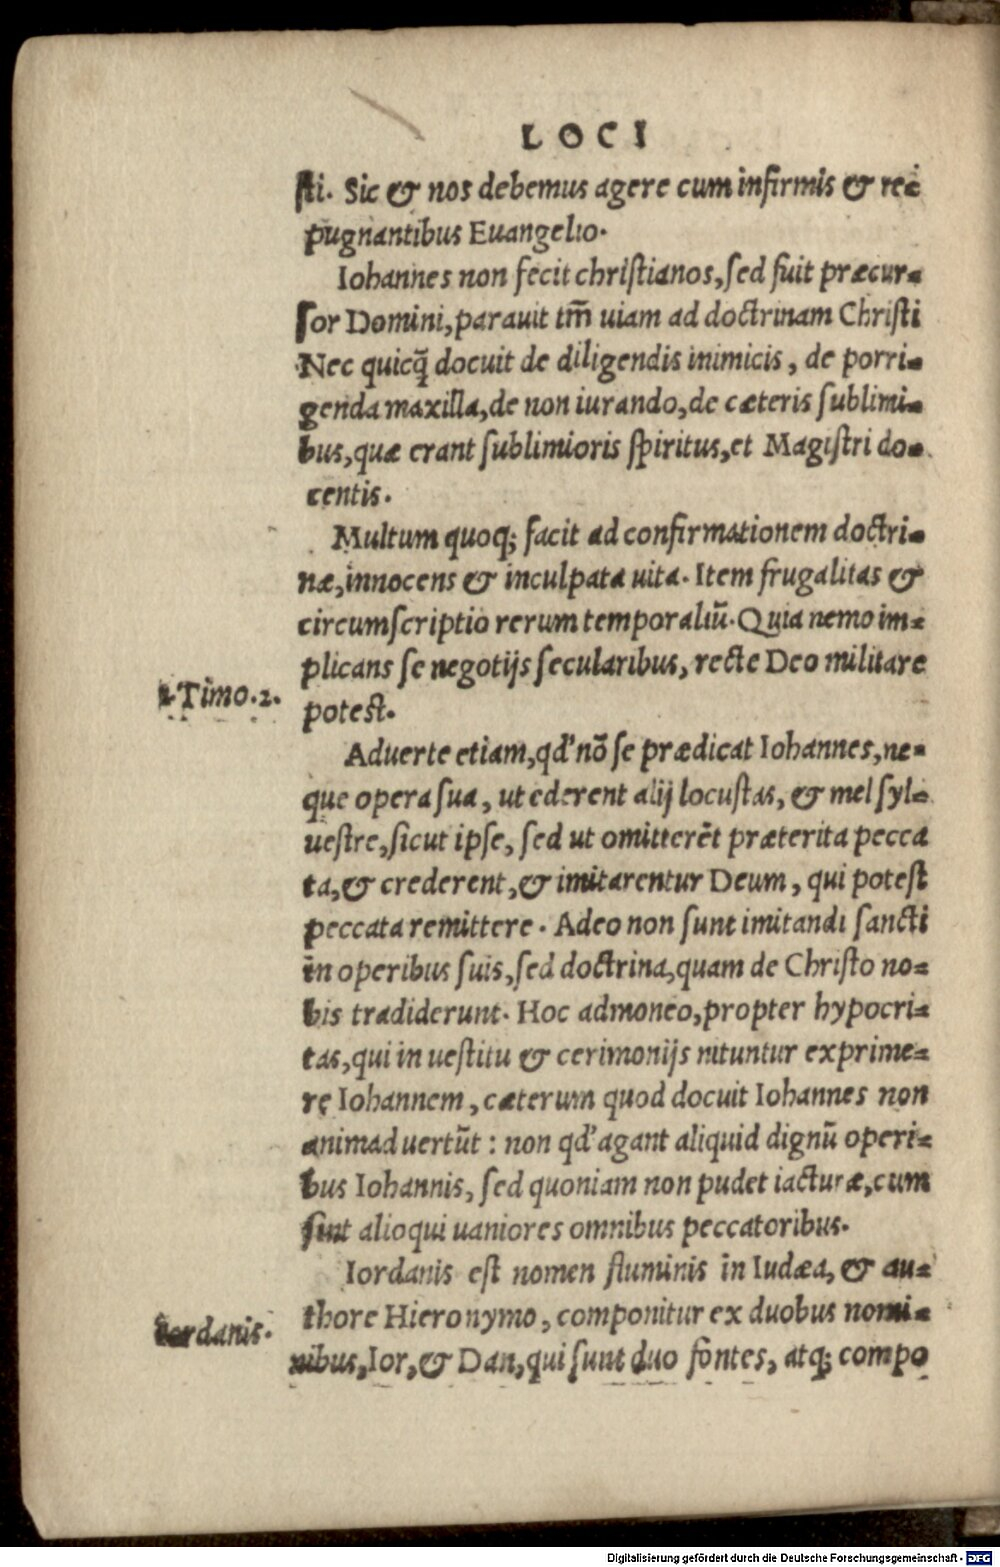 LOCI
sti. Sic & nos debemus agere cum infirmis & re-
pugnantibus Euangelio.
Iohannes non fecit christianos, sed fuit præcur-
sor Domini, parauit tm̄ uiam ad doctrinam Christi
Nec quicq̃ docuit de diligendis inimicis, de porri-
genda maxilla, de non iurando, de cæteris sublimi-
bus, quæ erant sublimioris spiritus, et Magistri do-
centis.
Multum quoq; facit ad confirmationem doctri-
næ, innocens & inculpata uita. Item frugalitas &
circumscriptio rerum temporaliũ. Quia nemo im-
plicans se negotijs secularibus, recte Deo militare
2. Timo. 2.
potest.
Aduerte etiam, qd' nõ se prædicat Iohannes, ne-
que opera sua, ut ederent alij locustas, & mel syl-
uestre, sicut ipse, sed ut omitterẽt præterita pecca
ta, & crederent, & imitarentur Deum, qui potest
peccata remittere. Adeo non sunt imitandi sancti
in operibus suis, sed doctrina, quam de Christo no-
bis tradiderunt. Hoc admoneo, propter hypocri-
tas, qui in uestitu & cerimonijs nituntur exprime-
re Iohannem, cæterum quod docuit Iohannes non
animaduertũt: non qd' agant aliquid dignũ operi-
bus Iohannis, sed quoniam non pudet iacturæ, cum
sint alioqui uaniores omnibus peccatoribus.
Iordanis est nomen fluminis in Iudæa, & au-
thore Hieronymo, componitur ex duobus nomi-
Iordanis.
nibus, Ior, & Dan, qui sunt duo fontes, atq; compo
Digitalisierung gefördert durch die Deutsche Forschungsgemeinschaft - DFG